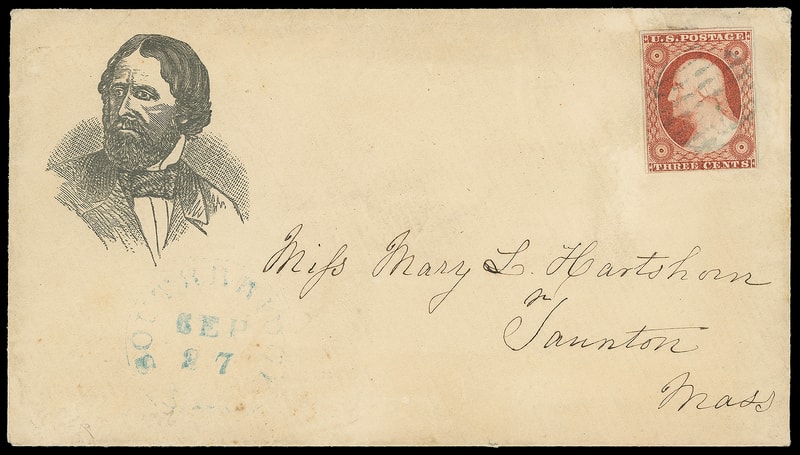 U.S. POSTAGE
THREE CENTS
Miſs Mary L. Hartshorn
Taunton
Mass
SEP
27